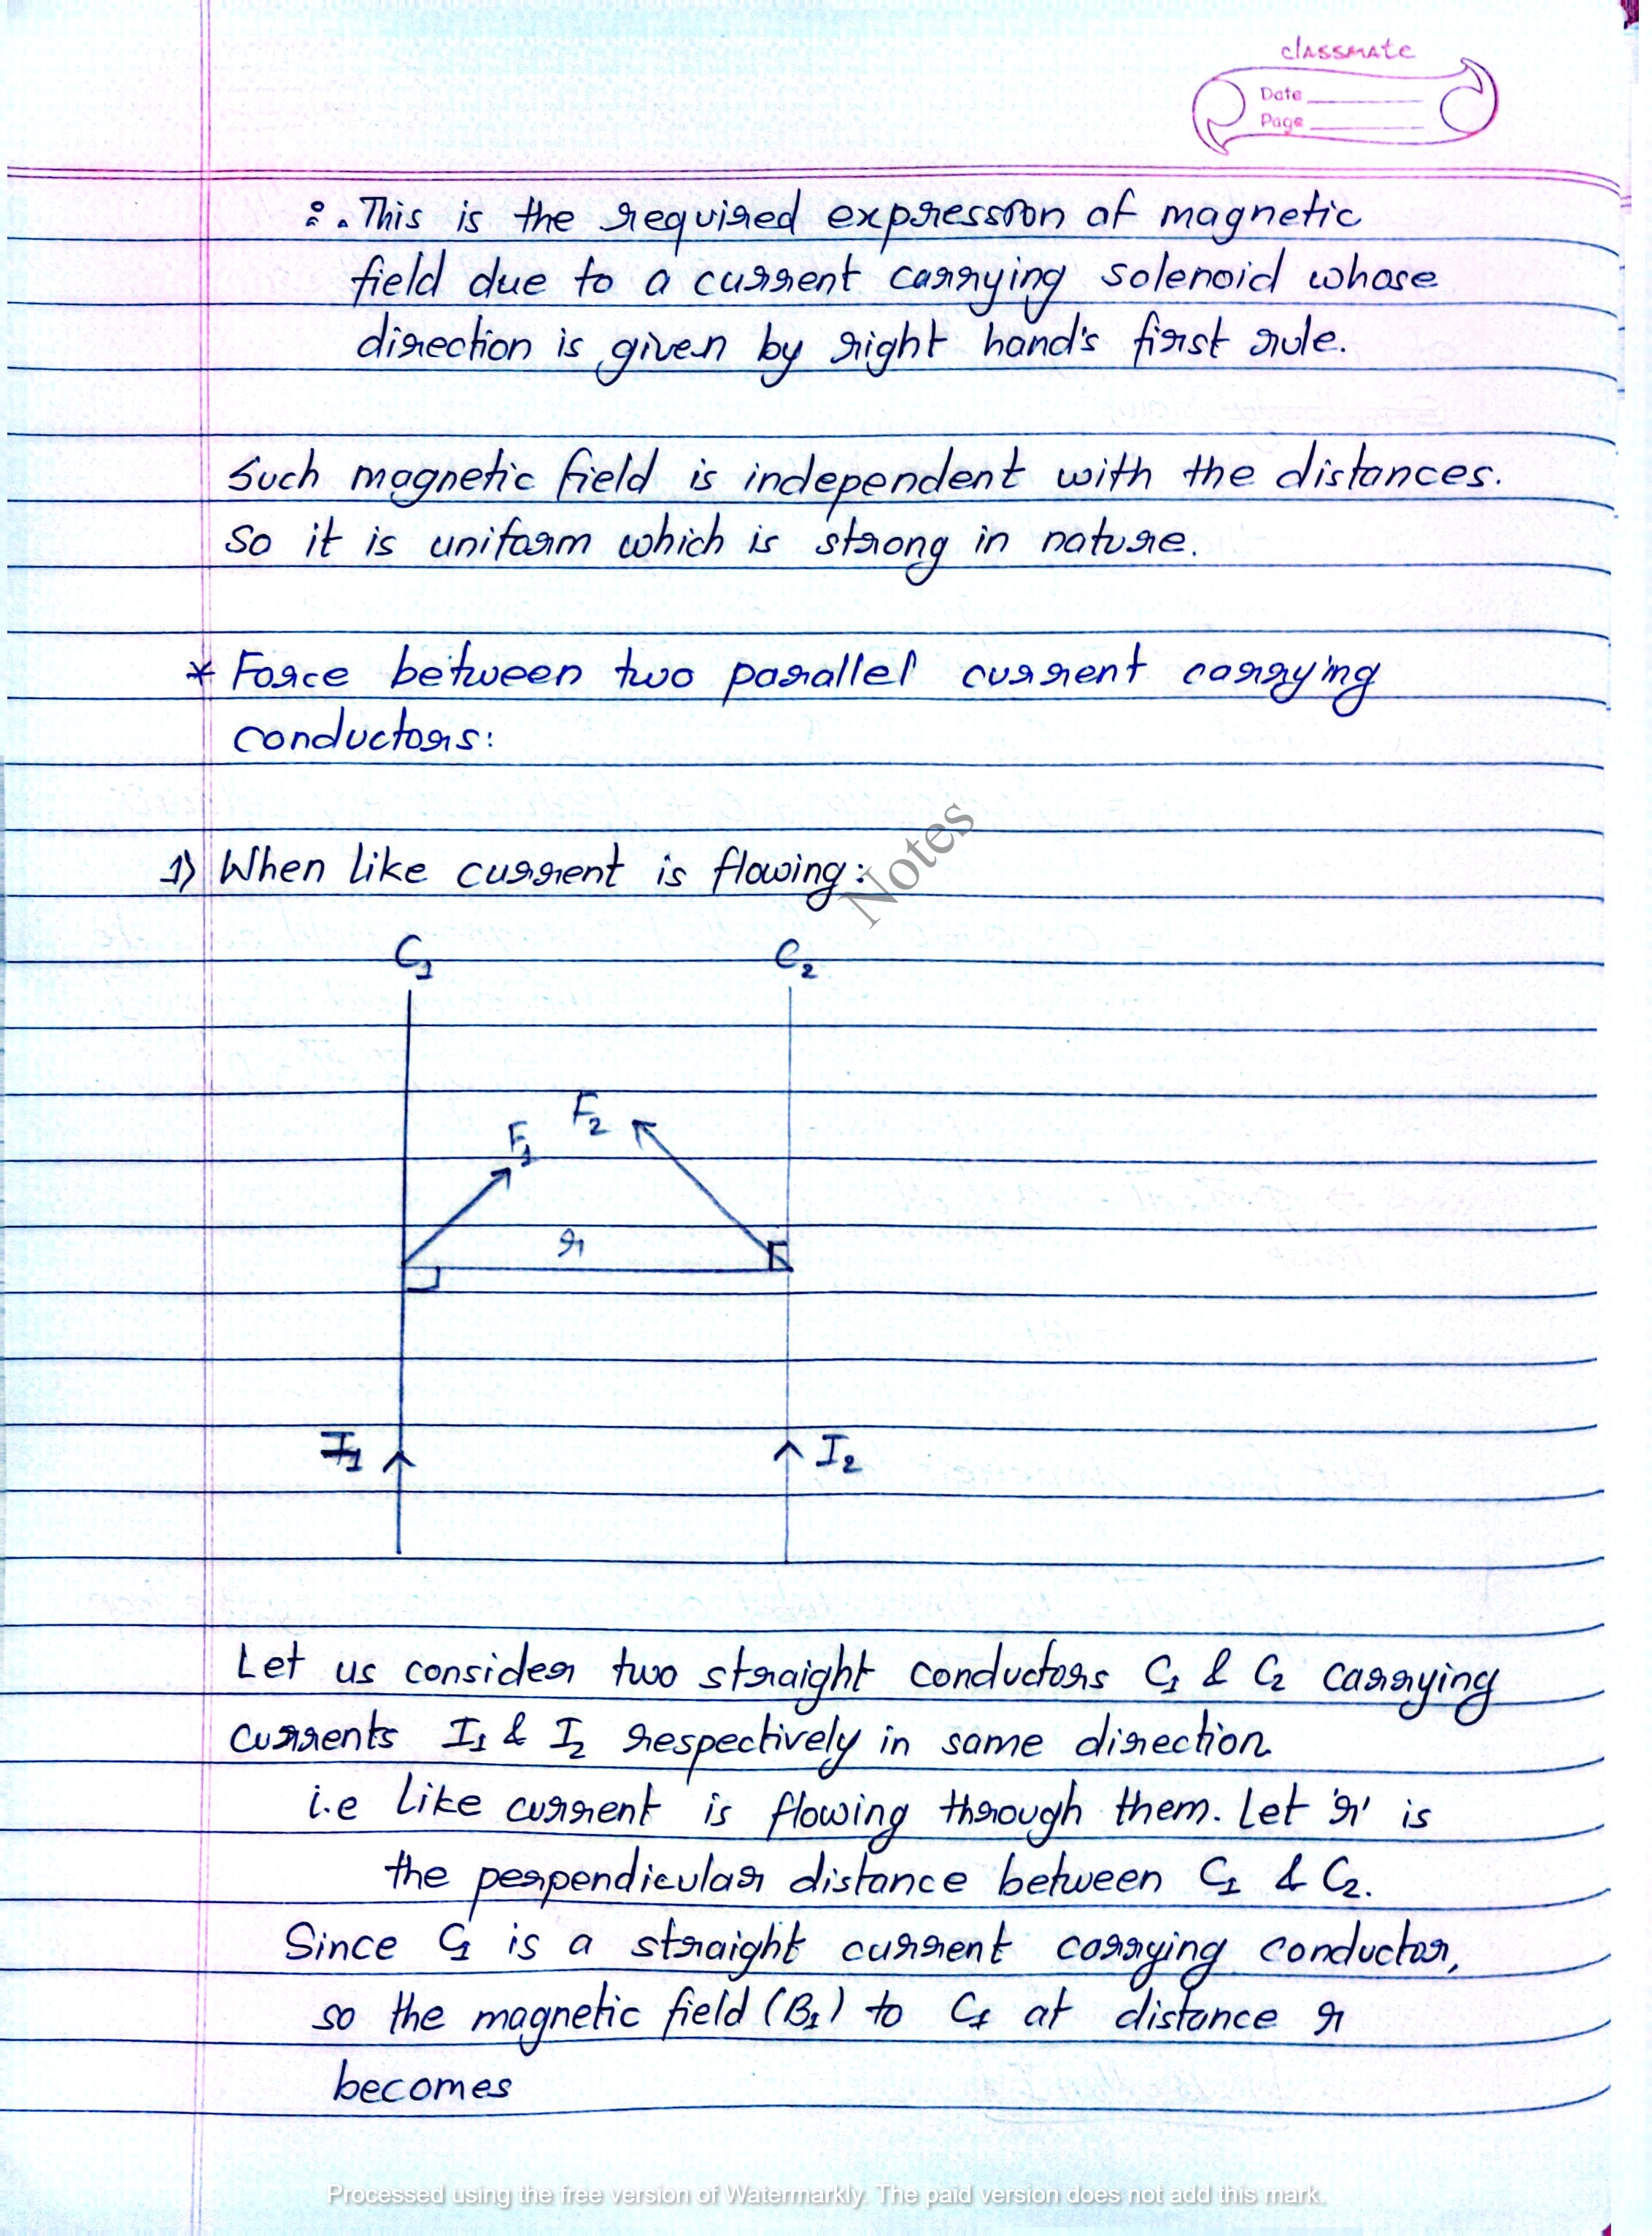 classmate
Date
Page
∴ This is the required expression of magnetic
field due to a current carrying solenoid whose
direction is given by right hand's first rule.
Such magnetic field is independent with the distances.
So it is uniform which is strong in nature.
* Force between two parallel current carrying
conductors:
1) When like current is flowing:
Notes
C₁ C₂
F₂
F₁
r
I₁ I₂
Let us consider two straight conductors C₁ & C₂ carrying
currents I₁ & I₂ respectively in same direction
i.e like current is flowing through them. Let 'r' is
the perpendicular distance between C₁ & C₂.
Since C₁ is a straight current carrying conductor,
so the magnetic field (B₁) to C₁ at distance r
becomes
Processed using the free version of Watermarkly. The paid version does not add this mark.